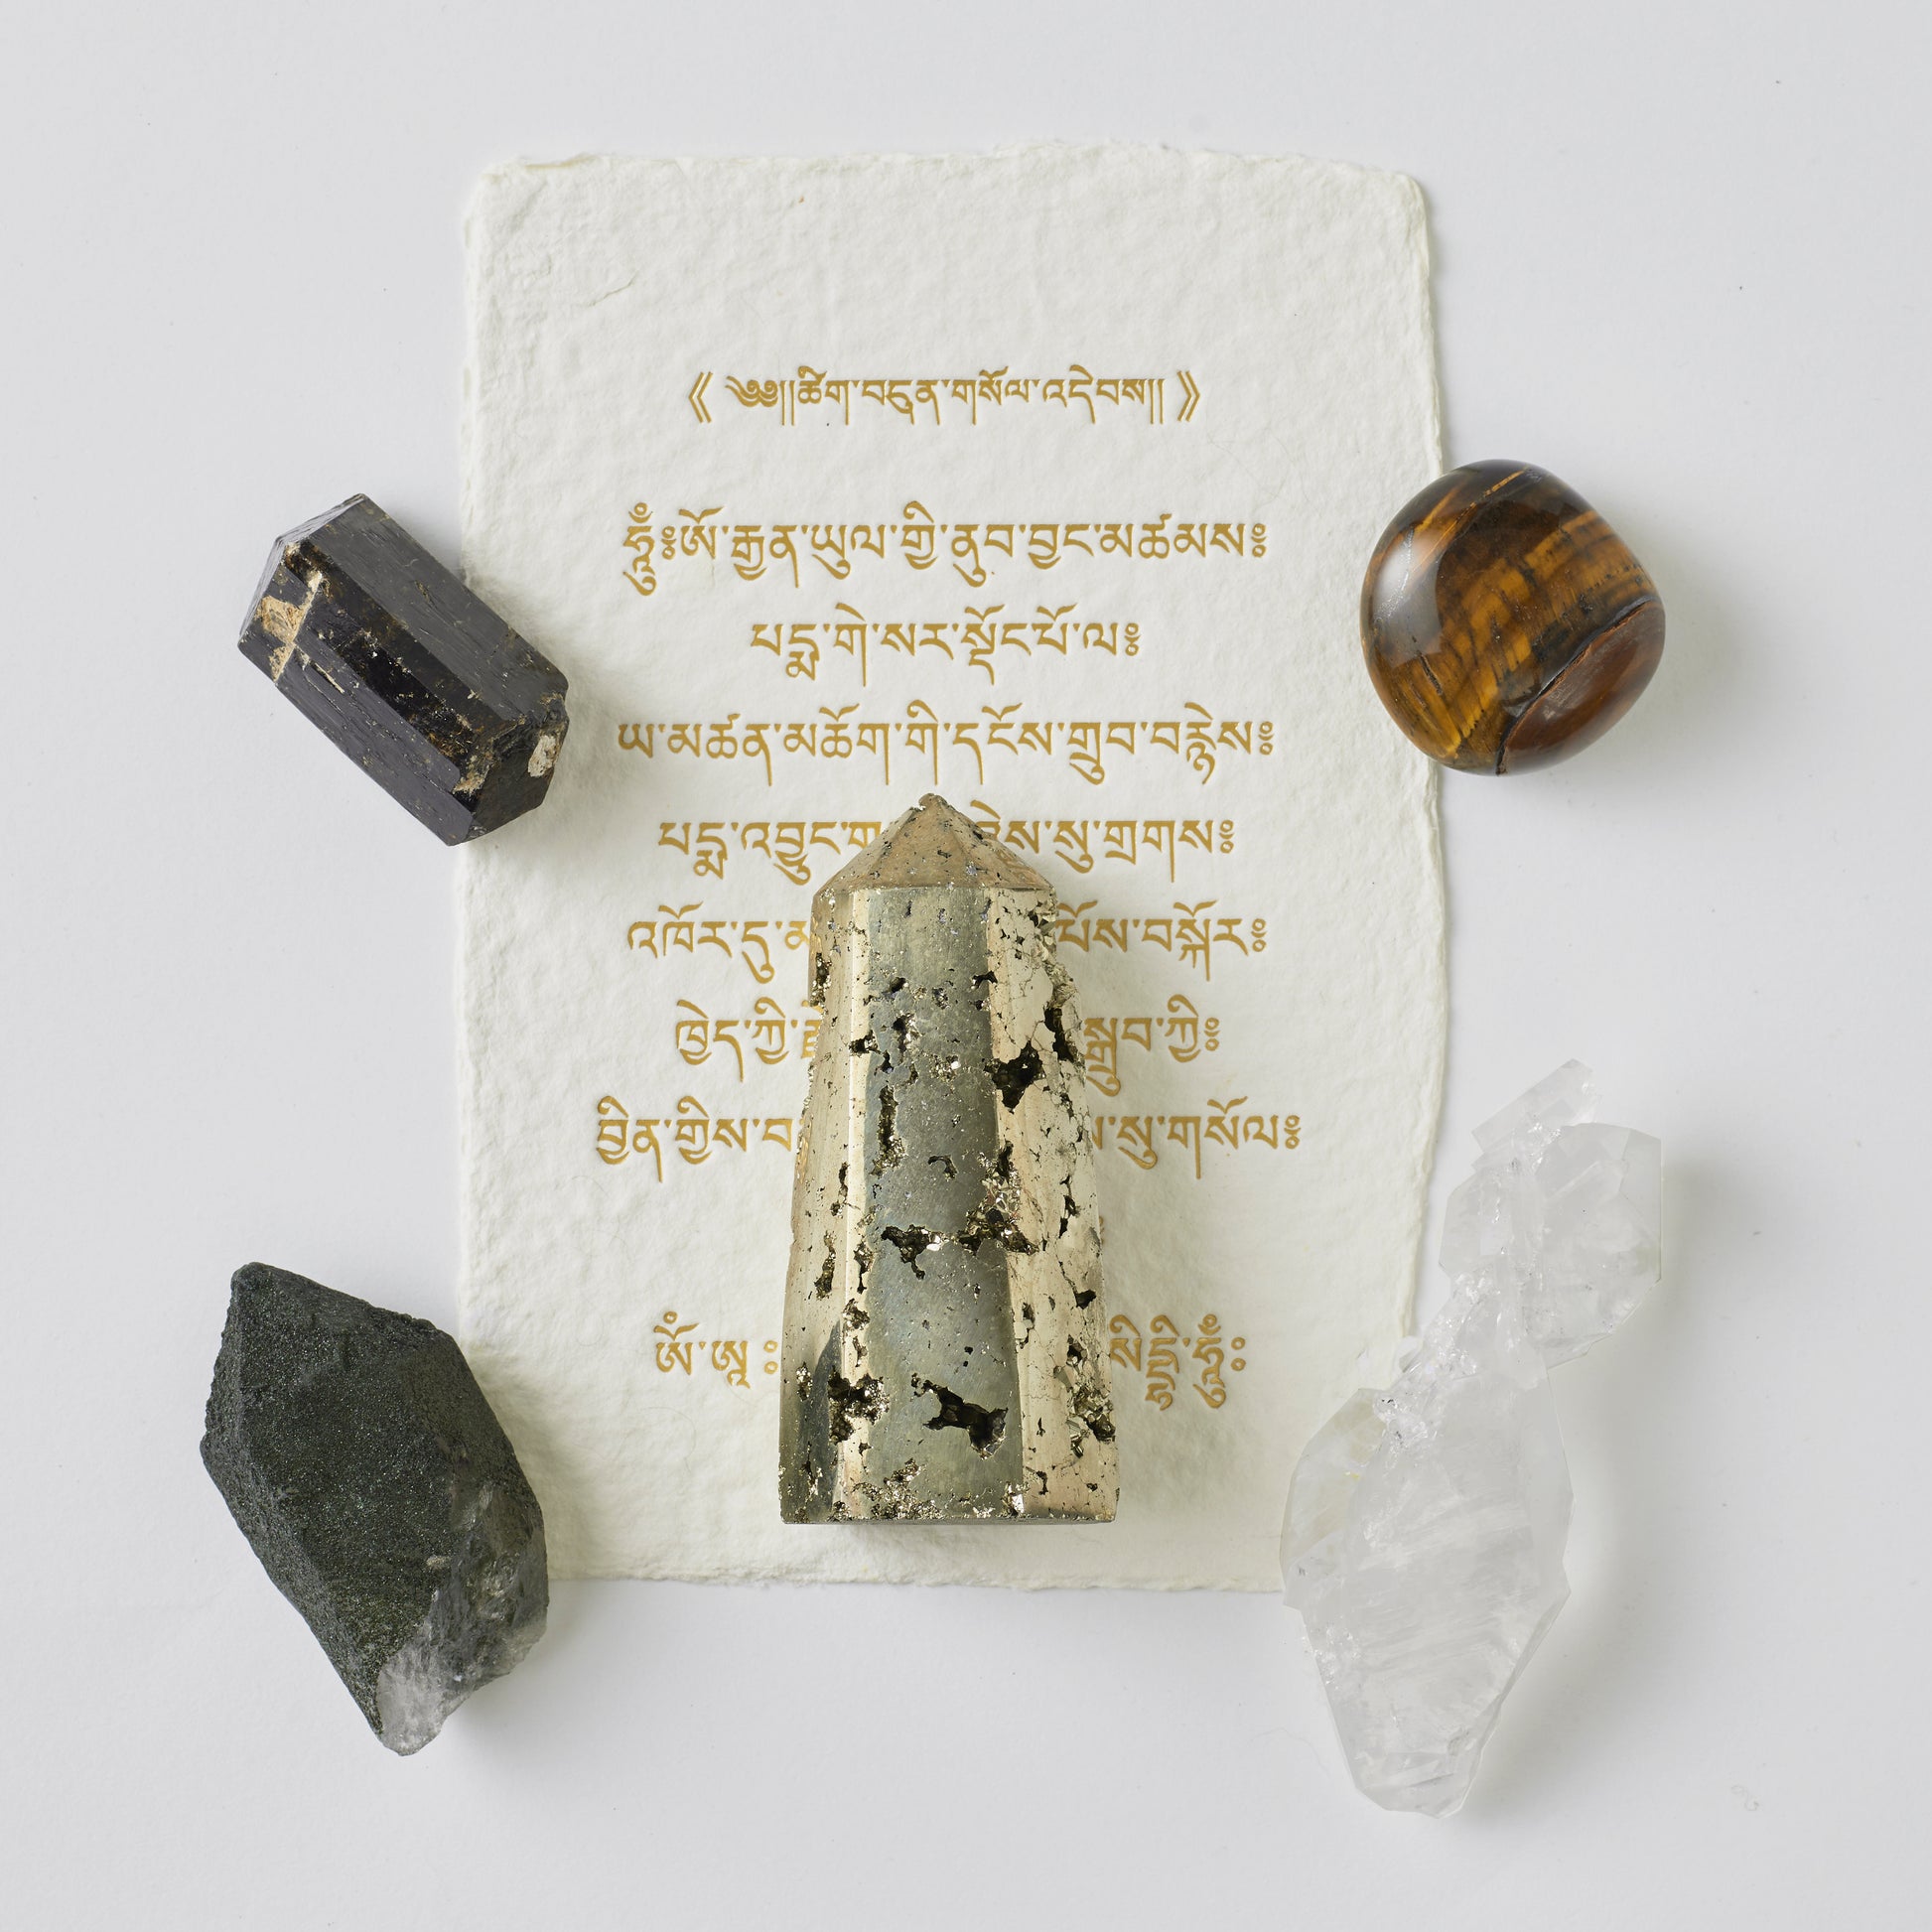 《 ༄༅།།ཚིག་བདུན་གསོལ་འདེབས།། 》
ཧཱུྃ༔ཨོ་རྒྱན་ཡུལ་གྱི་ནུབ་བྱང་མཚམས༔
པདྨ་གེ་སར་སྡོང་པོ་ལ༔
ཡ་མཚན་མཆོག་གི་དངོས་གྲུབ་བརྙེས༔
པདྨ་འབྱུང་ སུ་གྲགས༔
འཁོར་དུ་ བསྐོར༔
ཁྱེད་ཀྱི་ སྒྲུབ་ཀྱི༔
བྱིན་གྱིས་ སུ་གསོལ༔
ཨོཾ་ཨཱ༔ སིདྡྷི་ཧཱུྃ༔